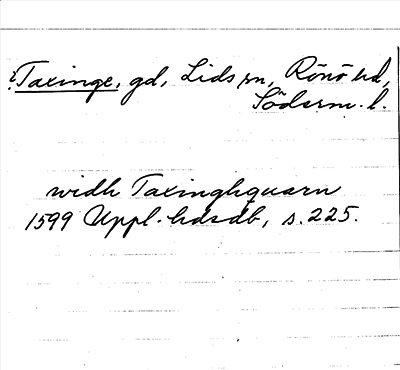 ? Taxinge, gd, Lids sn, Rönö hd,
Söderm. l.
widh Taxinghquarn
1599 Uppl. hdsdb, s. 225.